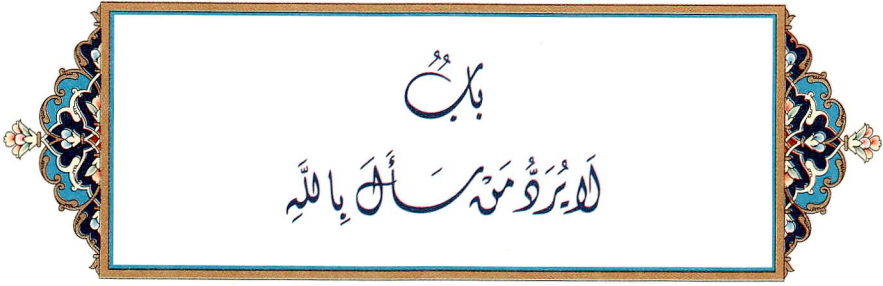 بَابٌ
لَا يُرَدُّ مَنْ سَأَلَ بِاللَّهِ